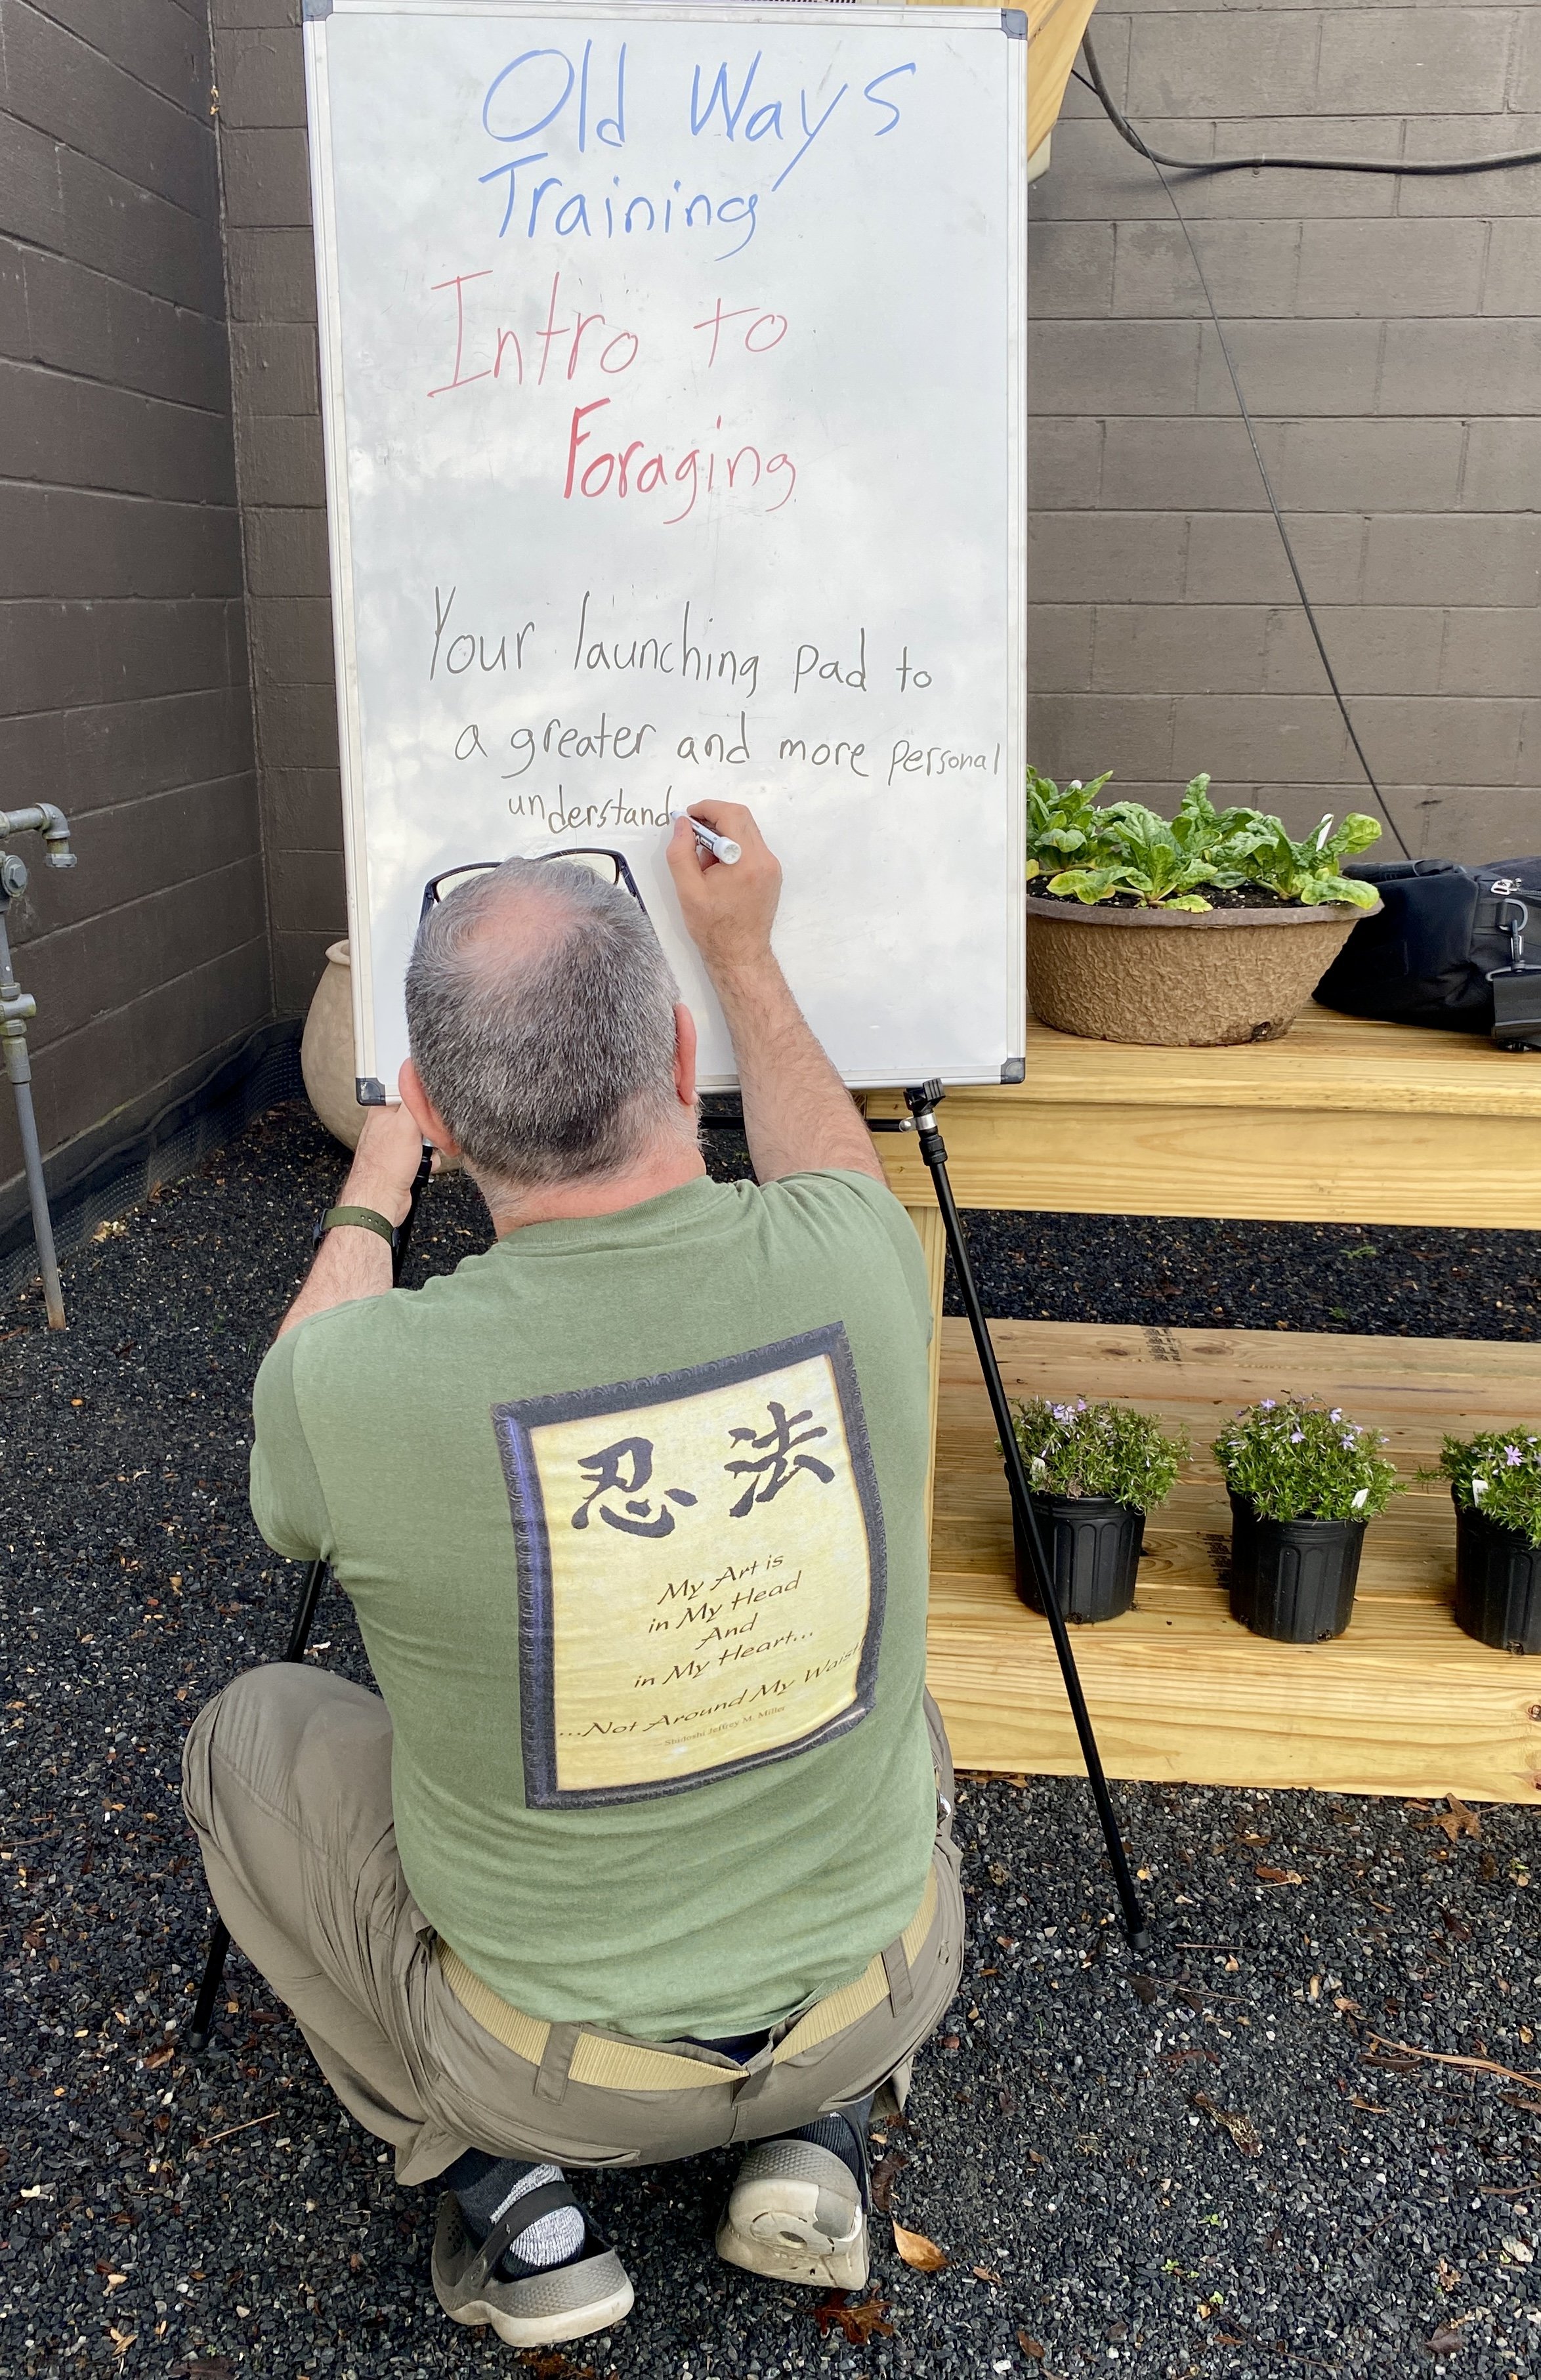 Old Ways
Training
Intro to
Foraging
Your launching pad to
a greater and more personal
understand
忍法
My Art is
in My Head
And
in My Heart...
...Not Around My Waist
Shidoshi Jeffrey M. Miller